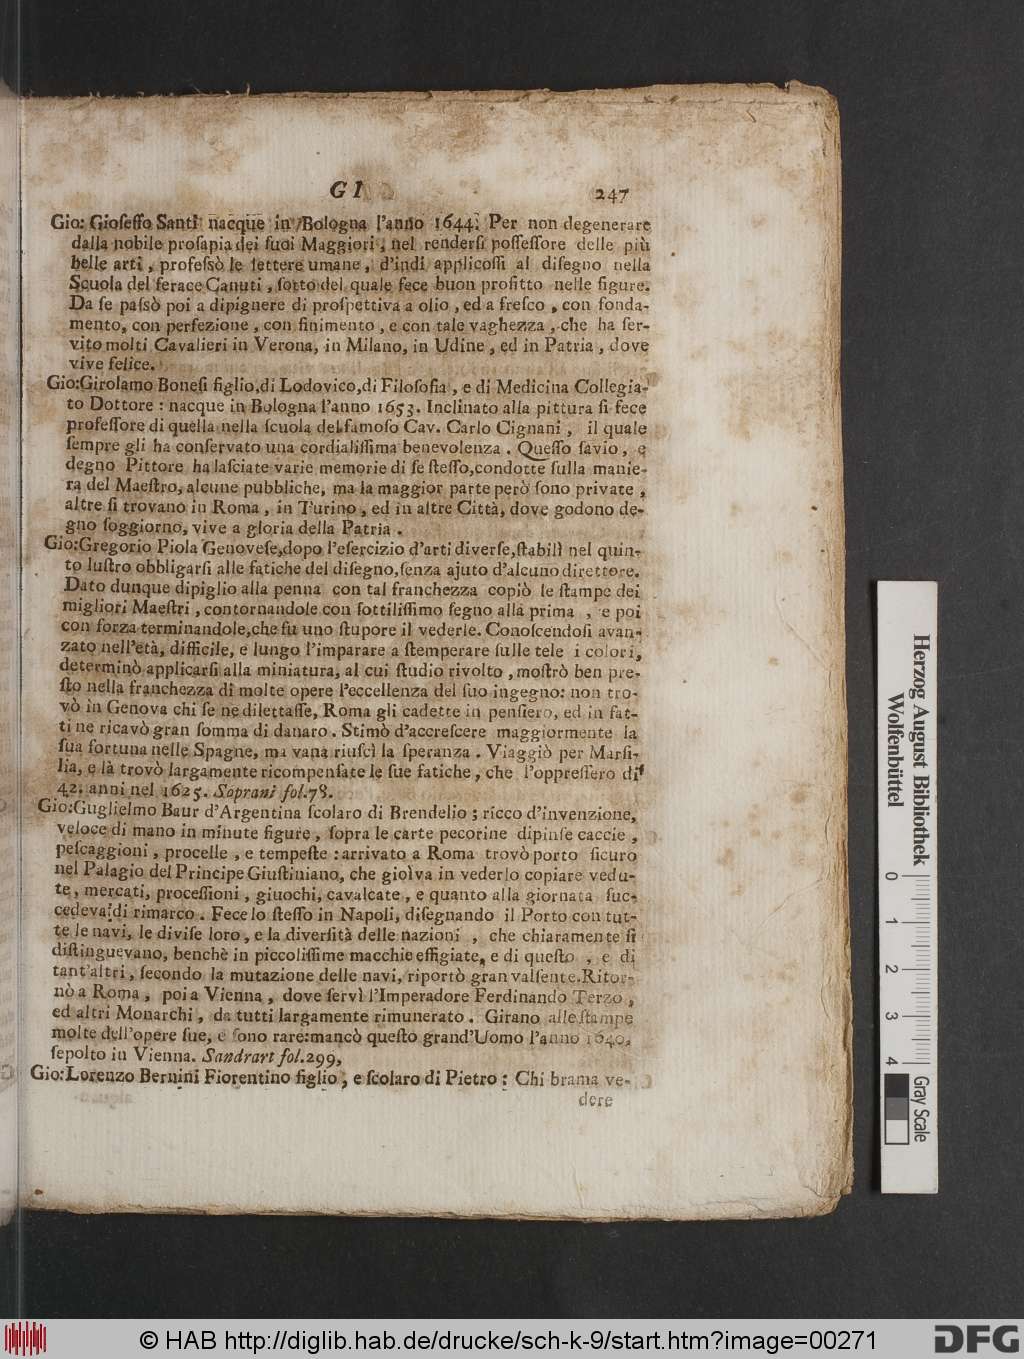 G I 247
Gio: Gioſeffo Santi nacque in Bologna l'anno 1644. Per non degenerare
dalla nobile proſapia dei ſuoi Maggiori, nel renderſi poſſeſſore delle più
belle arti, profeſsò le lettere umane, d'indi applicoſſi al diſegno nella
Scuola del ferace Canuti, ſotto del quale fece buon profitto nelle figure.
Da ſe paſsò poi a dipignere di proſpettiva a olio, ed a freſco, con fonda-
mento, con perfezione, con finimento, e con tale vaghezza, che ha ſer-
vito molti Cavalieri in Verona, in Milano, in Udine, ed in Patria, dove
vive felice.
Gio: Girolamo Boneſi figlio di Lodovico, di Filoſofia, e di Medicina Collegia-
to Dottore: nacque in Bologna l'anno 1653. Inclinato alla pittura ſi fece
profeſſore di quella nella ſcuola del famoſo Cav. Carlo Cignani, il quale
ſempre gli ha conſervato una cordialiſſima benevolenza. Queſſo ſavio, e
degno Pittore ha laſciate varie memorie di ſe ſteſſo, condotte ſulla manie-
ra del Maeſtro, alcune pubbliche, ma la maggior parte però ſono private,
altre ſi trovano in Roma, in Turino, ed in altre Città, dove godono de-
gno ſoggiorno, vive a gloria della Patria.
Gio: Gregorio Piola Genoveſe, dopo l'eſercizio d'arti diverſe, ſtabilì nel quin-
to luſtro obbligarſi alle fatiche del diſegno, ſenza ajuto d'alcuno direttore.
Dato dunque di piglio alla penna con tal franchezza copiò le ſtampe dei
migliori Maeſtri, contornandole con ſottiliſſimo ſegno alla prima, e poi
con forza terminandole, che fu uno ſtupore il vederle. Conoſcendoſi avan-
zato nell'età, difficile, e lungo l'imparare a ſtemperare ſulle tele i colori,
determinò applicarſi alla miniatura, al cui ſtudio rivolto, moſtrò ben pre-
ſto nella franchezza di molte opere l'eccellenza del ſuo ingegno: non tro-
vò in Genova chi ſe ne dilettaſſe, Roma gli cadette in penſiero, ed in fat-
ti ne ricavò gran ſomma di danaro. Stimò d'accreſcere maggiormente la
ſua fortuna nelle Spagne, ma vana riuſcì la ſperanza. Viaggiò per Marſi-
lia, e là trovò largamente ricompenſate le ſue fatiche, che l'oppreſſero di
42. anni nel 1625. Soprani fol. 78.
Gio: Guglielmo Baur d'Argentina ſcolaro di Brendelio; ricco d'invenzione,
veloce di mano in minute figure, ſopra le carte pecorine dipinſe caccie,
peſcaggioni, procelle, e tempeſte: arrivato a Roma trovò porto ſicuro
nel Palagio del Principe Giuſtiniano, che gioìva in vederlo copiare vedu-
te, mercati, proceſſioni, giuochi, cavalcate, e quanto alla giornata ſuc-
cedeva di rimarco. Fece lo ſteſſo in Napoli, diſegnando il Porto con tut-
te le navi, le diviſe loro, e la diverſità delle nazioni, che chiaramente ſi
diſtinguevano, benchè in piccoliſſime macchie effigiate, e di queſto, e di
tant'altri, ſecondo la mutazione delle navi, riportò gran valſente. Ritor-
nò a Roma, poi a Vienna, dove ſervì l'Imperadore Ferdinando Terzo,
ed altri Monarchi, da tutti largamente rimunerato. Girano alle ſtampe
molte dell'opere ſue, e ſono rare: mancò queſto grand'Uomo l'anno 1640.
ſepolto in Vienna. Sandrart fol. 299,
Gio: Lorenzo Bernini Fiorentino figlio, e ſcolaro di Pietro: Chi brama ve-
dere
Herzog August Bibliothek
Wolfenbüttel
0 1 2 3 4
Gray Scale
© HAB http://diglib.hab.de/drucke/sch-k-9/start.htm?image=00271
DFG